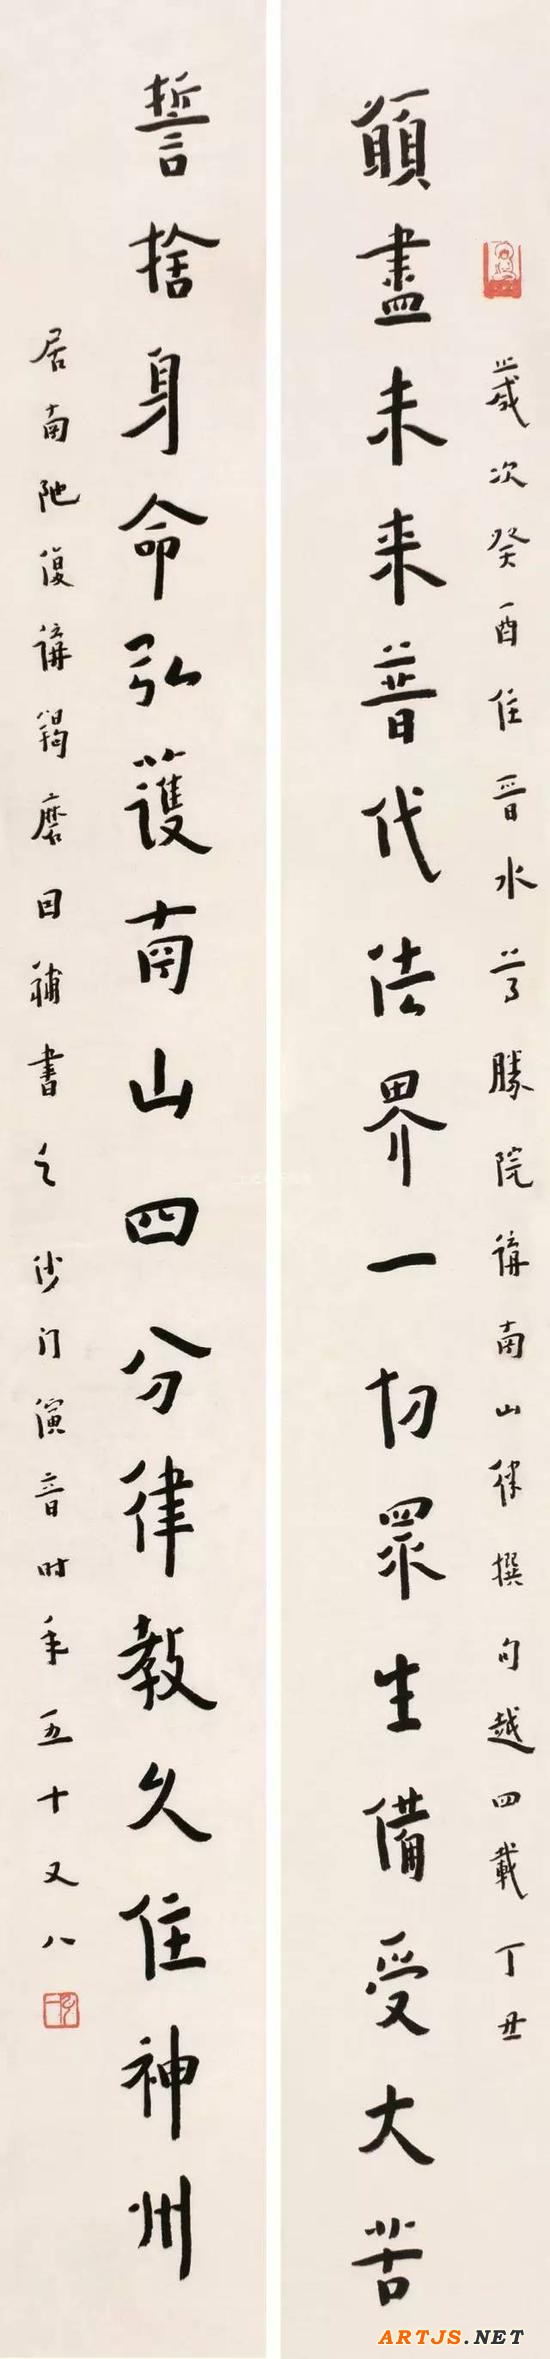 歲次癸酉住晉水尊勝院講南山律撰句越四載丁丑
願盡未来普代法界一切眾生備受大苦
誓捨身命弘護南山四分律教久住神州
居南陀復講羯磨因補書之沙门演音时年五十又八
ARTJS.NET